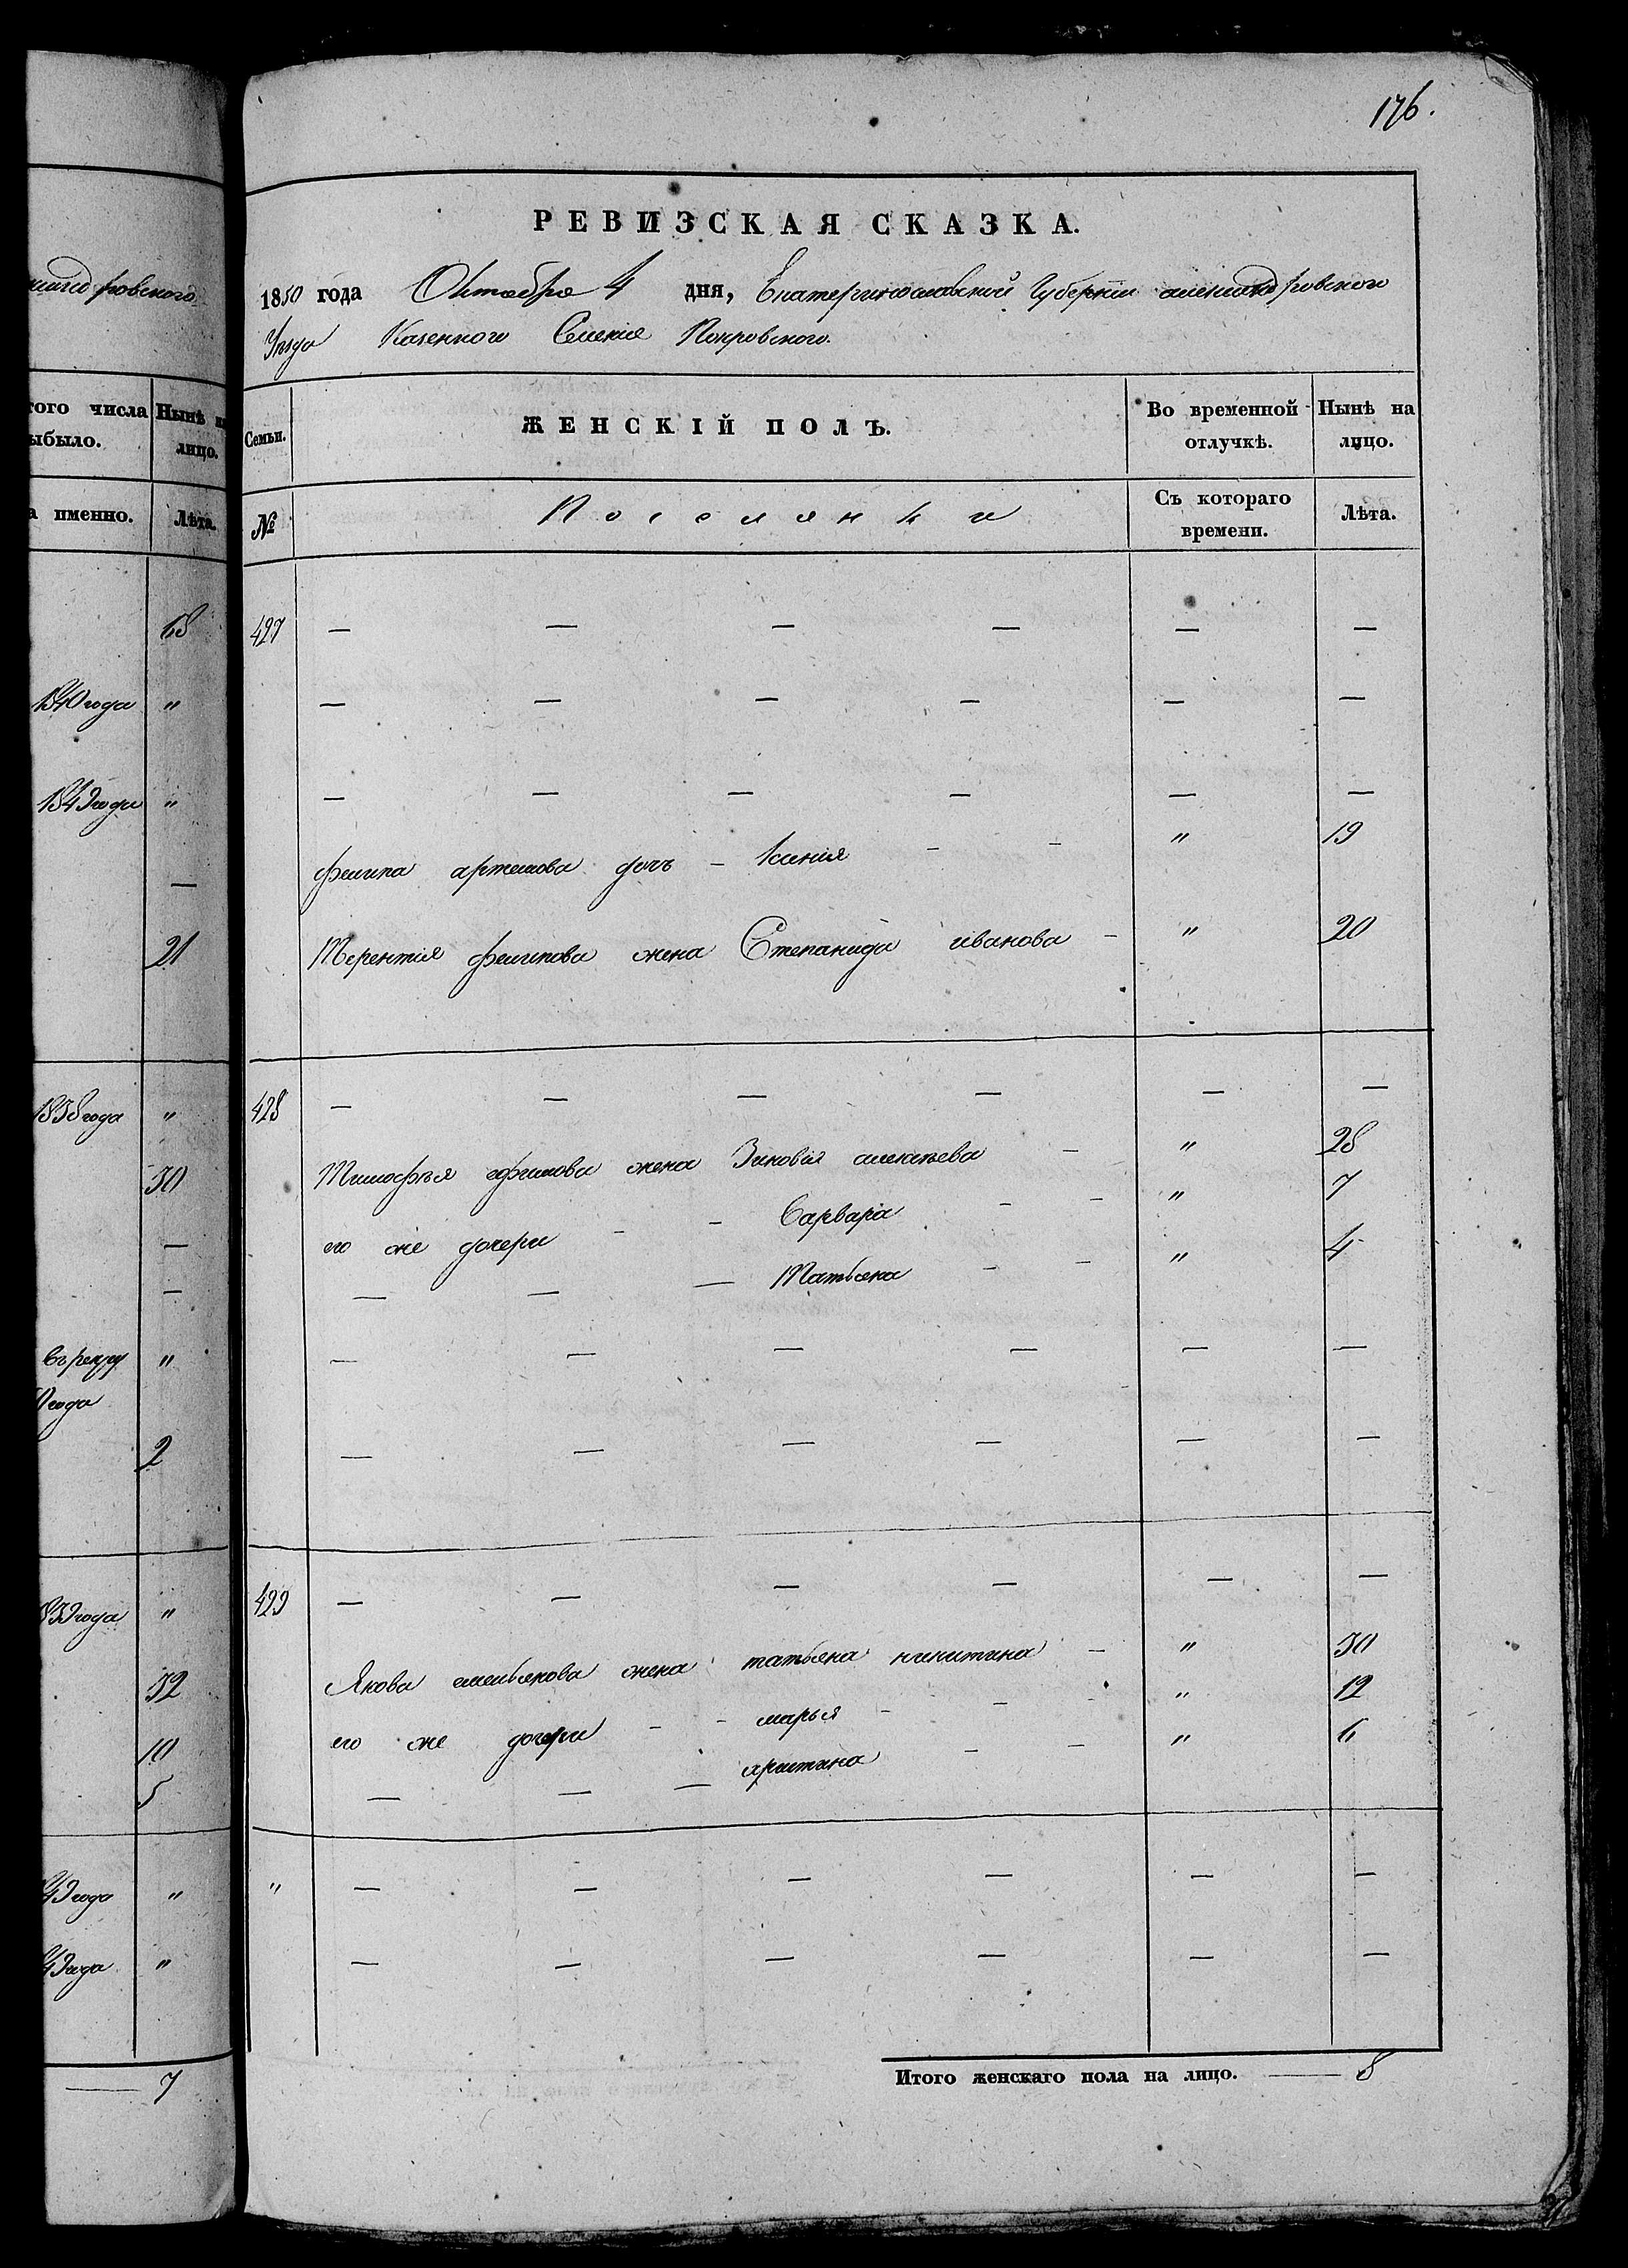 176.
РЕВИЗСКАЯ СКАЗКА.
1850 года Октября 4 дня, Екатеринославской Губернiи александровского
Уезда Казенного Селенiя Покровского.
Семьи. ЖЕНСКІЙ ПОЛЪ. Во временной отлучкѣ. Нынѣ на лицо.
№ Поселянки Съ котораго времени. Лѣта.
427 — — — — — —
— — — — — —
— — — — — —
Филипа артемова дочь - Ксенiя - - " 19
Терентiя филипова жена Степанида иванова - " 20
428 — — — — — —
Тимофѣя ефимова жена Зиновiя алексѣева - " 28
его же дочери - - Варвара - - " 7
— — — Татьяна - - " 4
— — — — — —
— — — — — —
429 — — — — — —
Якова емельянова жена татьяна никитина - " 30
его же дочери - - марья - - - " 12
— — — христина - - " 6
" — — — — — —
— — — — — —
Итого женскаго пола на лицо. — 8
ровского
того числа Нынѣ на
ыбыло. лицо.
а именно. Лѣта.
68
1840 года "
1849 года "
—
21
1838 года "
30
—
—
въ рекру "
0 года
2
839 года "
32
10
5
49 года "
49 года "
— 7